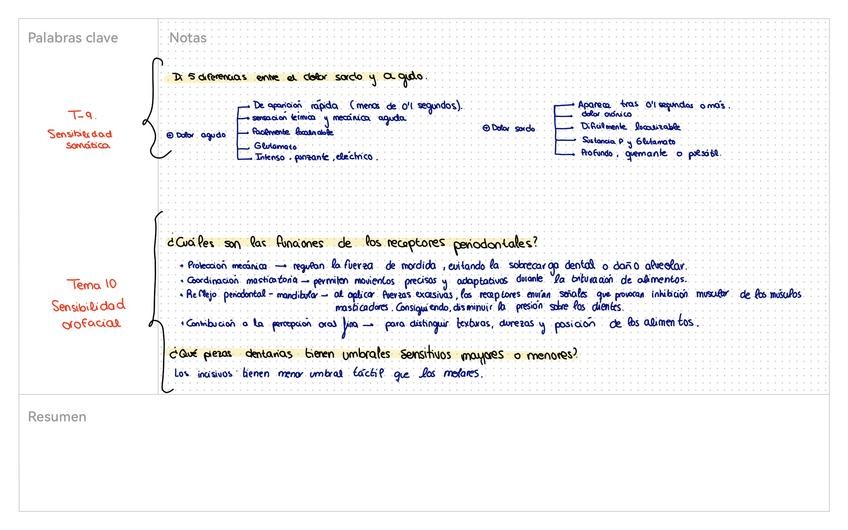 Palabras clave
Notas
Di 5 diferencias entre el dolor sordo y agudo.
T-9.
Sensibilidad
somática
Dolor agudo
De aparición rápida (menos de 0'1 segundos).
sensación térmica y mecánica aguda
Facilmente localizable
Glutamato
Intenso, punzante, eléctrico.
Dolor sordo
Aparece tras 0'1 segundos o más.
dolor crónico
Dificilmente localizable
Sustancia P y Glutamato
Profundo, quemante o pulsátil.
Tema 10
Sensibilidad
orofacial
¿Cuáles son las funciones de los receptores periodontales?
• Protección mecánica → regulan la fuerza de mordida, evitando la sobrecarga dental o daño alveolar.
• Coordinación masticatoria → permiten movientos precisos y adaptativos durante la trituración de alimentos.
• Reflejo periodontal-mandibular → al aplicar fuerzas excesivas, los receptores envían señales que provocan inhibición muscular de los músculos
masticadores. Consiguiendo, disminuir la presión sobre los dientes.
• Contribución a la percepción oral fina → para distinguir texturas, durezas y posición de los alimentos.
¿Qué piezas dentarias tienen umbrales sensitivos mayores o menores?
Los incisivos tienen menor umbral táctil que los molares.
Resumen